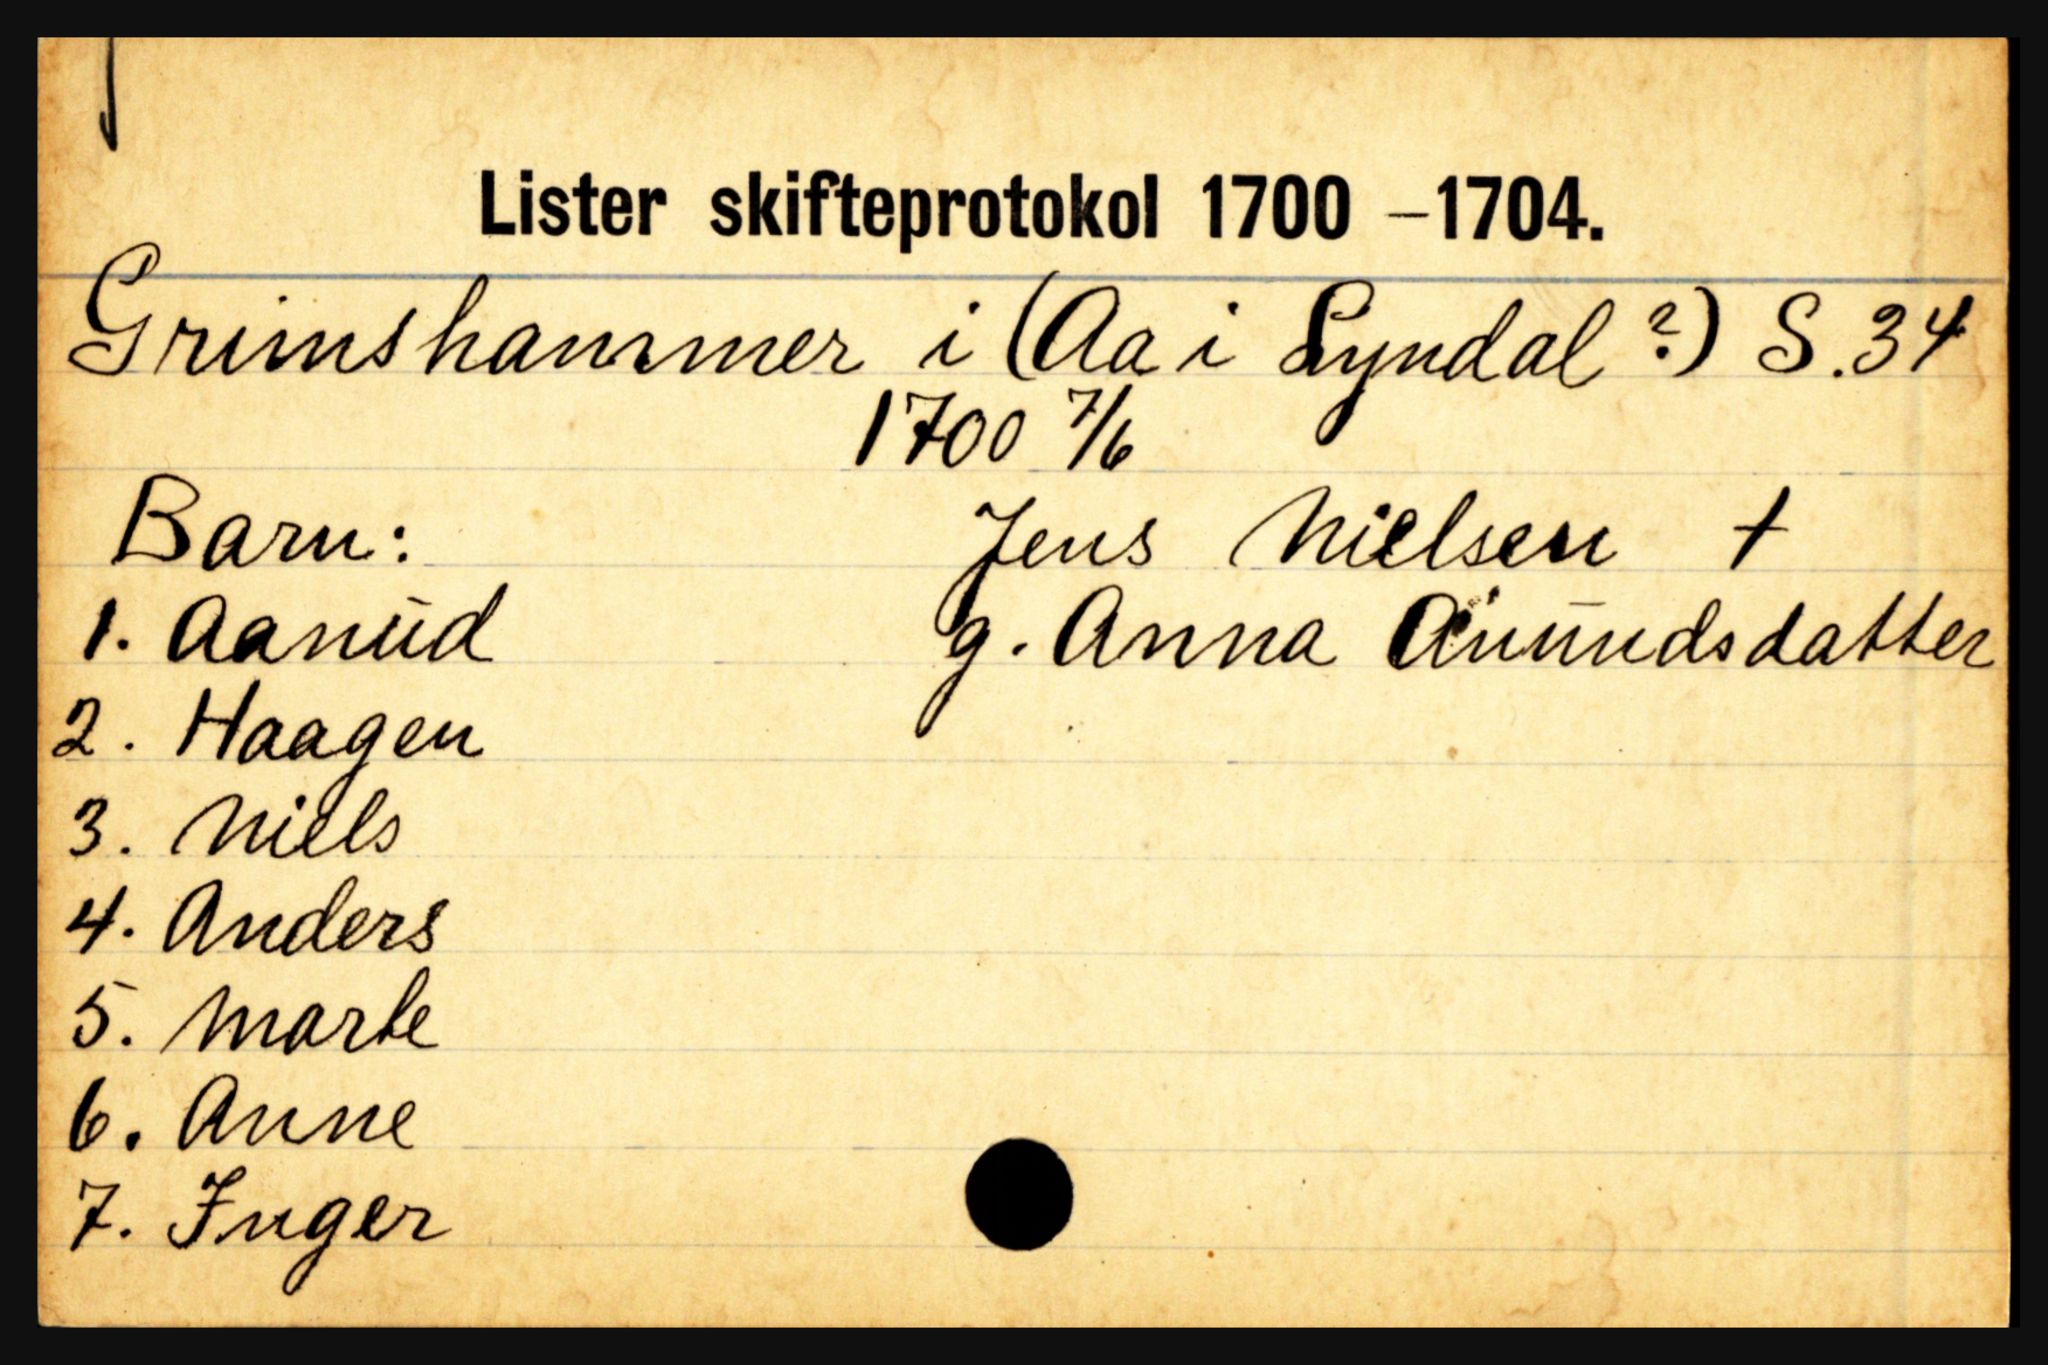 Lister skifteprotokol 1700 – 1704.
Grimshammer i (Aa i Lyndal ?) S. 34
1700 7/6
Barn: Jens Nielsen †
1. Aanud g. Anna Anundsdatter
2. Haagen
3. Niels
4. Anders
5. Marte
6. Anne
7. Inger